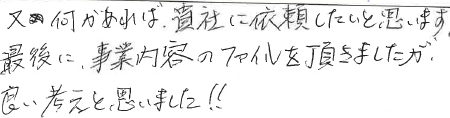 又何かあれば、貴社に依頼したいと思います。
最後に、事業内容のファイルを頂きましたが、
良い考えと思いました!!